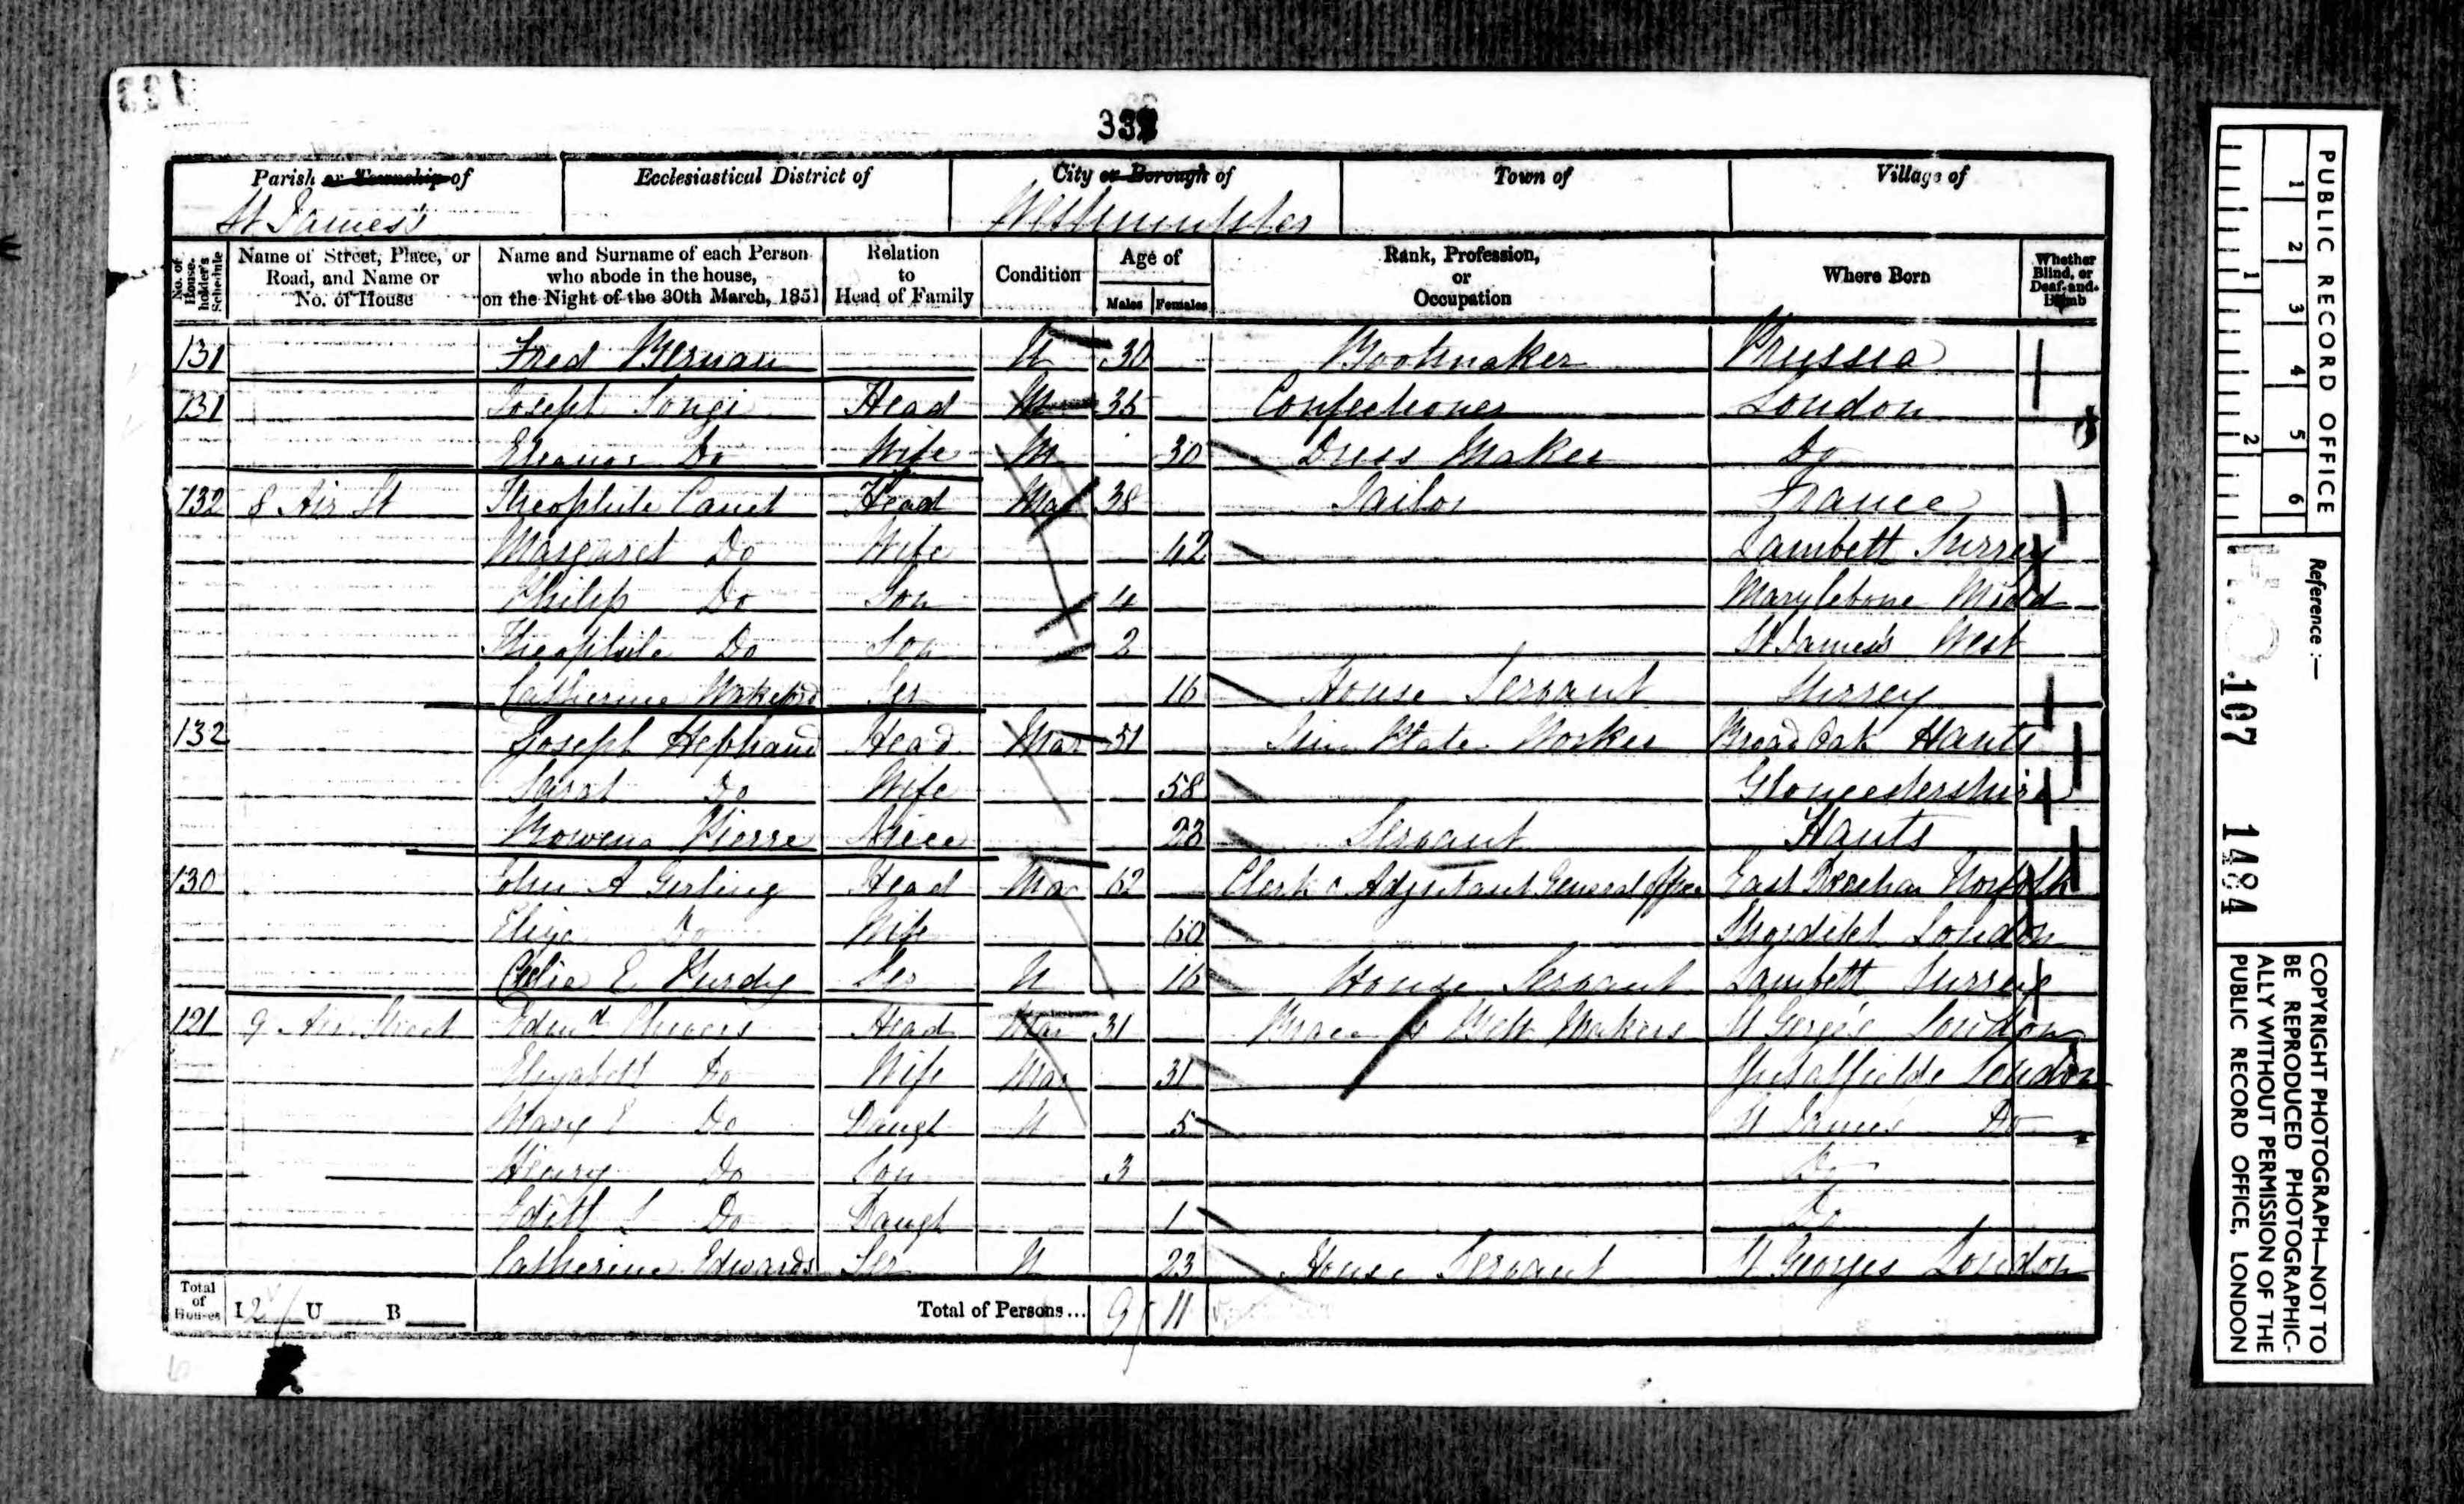 Parish or Township of
Ecclesiastical District of
City or Borough of
Town of
Village of
St James's
Westminster
No. of House-holder's Schedule
Name of Street, Place, or Road, and Name or No. of House
Name and Surname of each Person who abode in the house, on the Night of the 30th March, 1851
Relation to Head of Family
Condition
Age of
Males
Females
Rank, Profession, or Occupation
Where Born
Whether Blind, or Deaf-and-Dumb
131 Fred U 30 Bootmaker Prussia
131 Joseph Songi Head M 35 Confectioner London
Eleanor Do Wife M 30 Dress Maker Do
132 8 Air St Theophile Canet Head Mar 38 Tailor France
Margaret Do Wife 42 Lambeth Surrey
Philip Do Son 4 Marylebone Midd
Theophile Do Son 2 St James's West
Catherine Ser 16 House Servant Surrey
132 Joseph Head Mar 51 Tin Plate Worker Broad Oak Hants
Sarah Do Wife 58 Gloucestershire
Rowena Pierre Niece 23 Servant Hants
130 John A Girling Head Mar 62 Clerk Adjutant General Office East Norfolk
Eliza Do Wife 60 London
Celia E Purdy Ser U 16 House Servant Lambeth Surrey
121 9 Air Street Edmd Chivers Head Mar 31 Brace & Belt Makers St George's London
Elizabeth Do Wife Mar 31 Spitalfields London
Mary E Do Daugh U 5 St James Do
Henry Do Son 3 Do
Edith L Do Daugh 1 Do
Catherine Edwards Ser U 23 House Servant St Georges London
Total of Houses
I 2 U B
Total of Persons... 9 11
PUBLIC RECORD OFFICE
1 2 3 4 5 6
1 2
Reference:—
107 1484
COPYRIGHT PHOTOGRAPH—NOT TO
BE REPRODUCED PHOTOGRAPHIC-
ALLY WITHOUT PERMISSION OF THE
PUBLIC RECORD OFFICE, LONDON